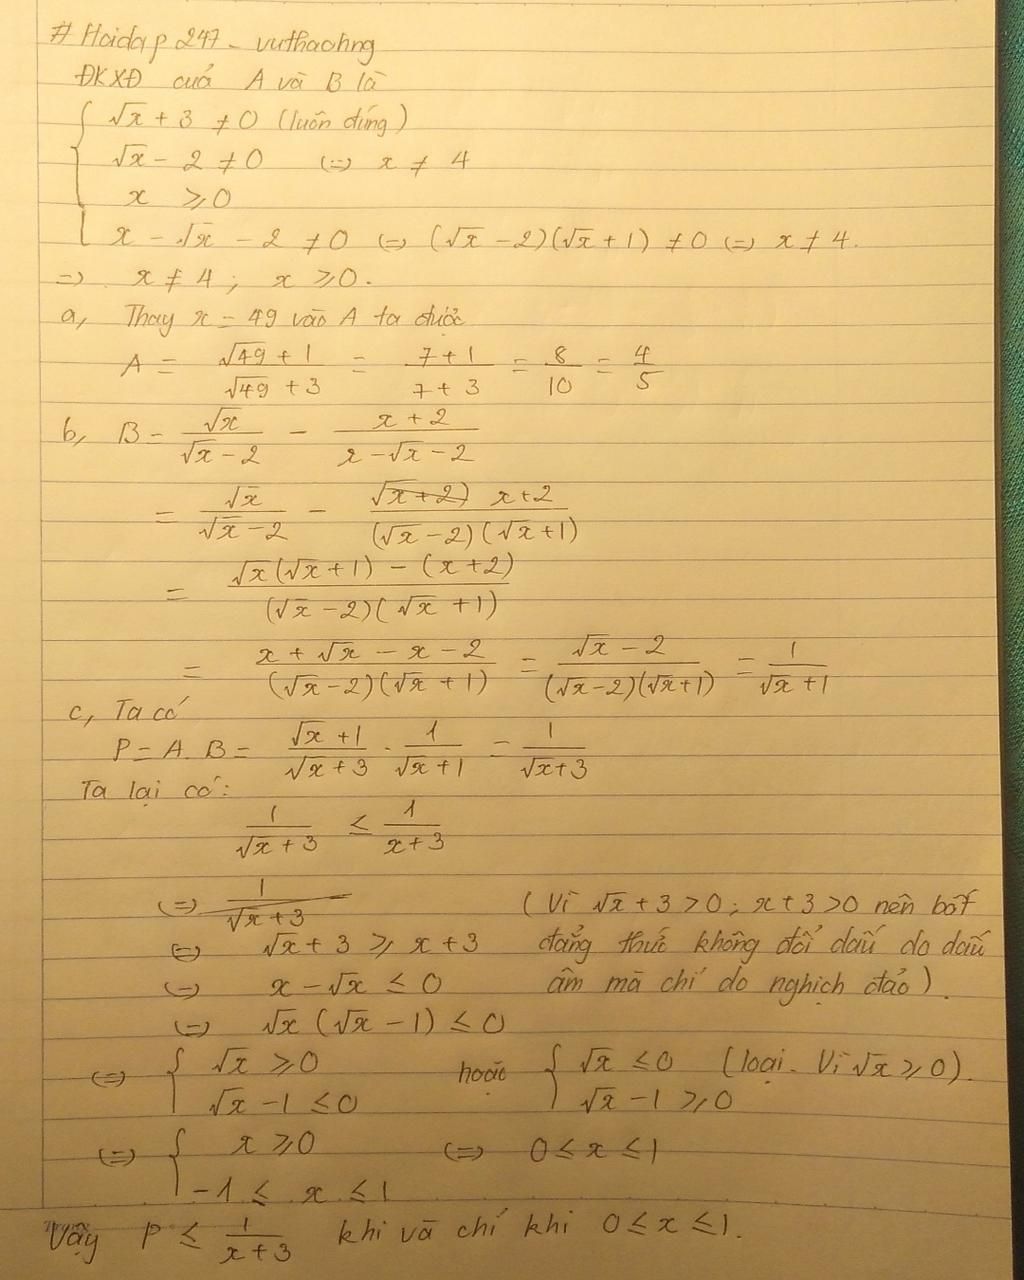 # Hoidap247 - vuthaohng
ĐKXĐ cuả A và B là
√x + 3 ≠ 0 (luôn đúng)
√x - 2 ≠ 0 (=) x ≠ 4
x ≥ 0
x - √x - 2 ≠ 0 (=) (√x - 2)(√x + 1) ≠ 0 (=) x ≠ 4.
=) x ≠ 4 ; x ≥ 0.
a, Thay x = 49 vào A ta được
A = (√49 + 1)/(√49 + 3) = (7 + 1)/(7 + 3) = 8/10 = 4/5
b, B = √x/(√x - 2) - (x + 2)/(x - √x - 2)
= √x/(√x - 2) - (x + 2)/((√x - 2)(√x + 1))
= (√x(√x + 1) - (x + 2))/((√x - 2)(√x + 1))
= (x + √x - x - 2)/((√x - 2)(√x + 1)) = (√x - 2)/((√x - 2)(√x + 1)) = 1/(√x + 1)
c, Ta có
P = A. B = (√x + 1)/(√x + 3) . 1/(√x + 1) = 1/(√x + 3)
Ta lại có:
1/(√x + 3) ≤ 1/(x + 3)
(=) 1/(√x + 3) (Vì √x + 3 > 0 ; x + 3 > 0 nên bất
(=) √x + 3 ≥ x + 3 đẳng thức không đổi dấu do dấu
(=) x - √x ≤ 0 âm mà chỉ do nghịch đảo).
(=) √x (√x - 1) ≤ 0
(=) { √x ≥ 0 hoặc { √x ≤ 0 (loại. Vì √x ≥ 0).
√x - 1 ≤ 0 √x - 1 ≥ 0
(=) { x ≥ 0 (=) 0 ≤ x ≤ 1
-1 ≤ x ≤ 1
Vậy P ≤ 1/(x + 3) khi và chỉ khi 0 ≤ x ≤ 1.